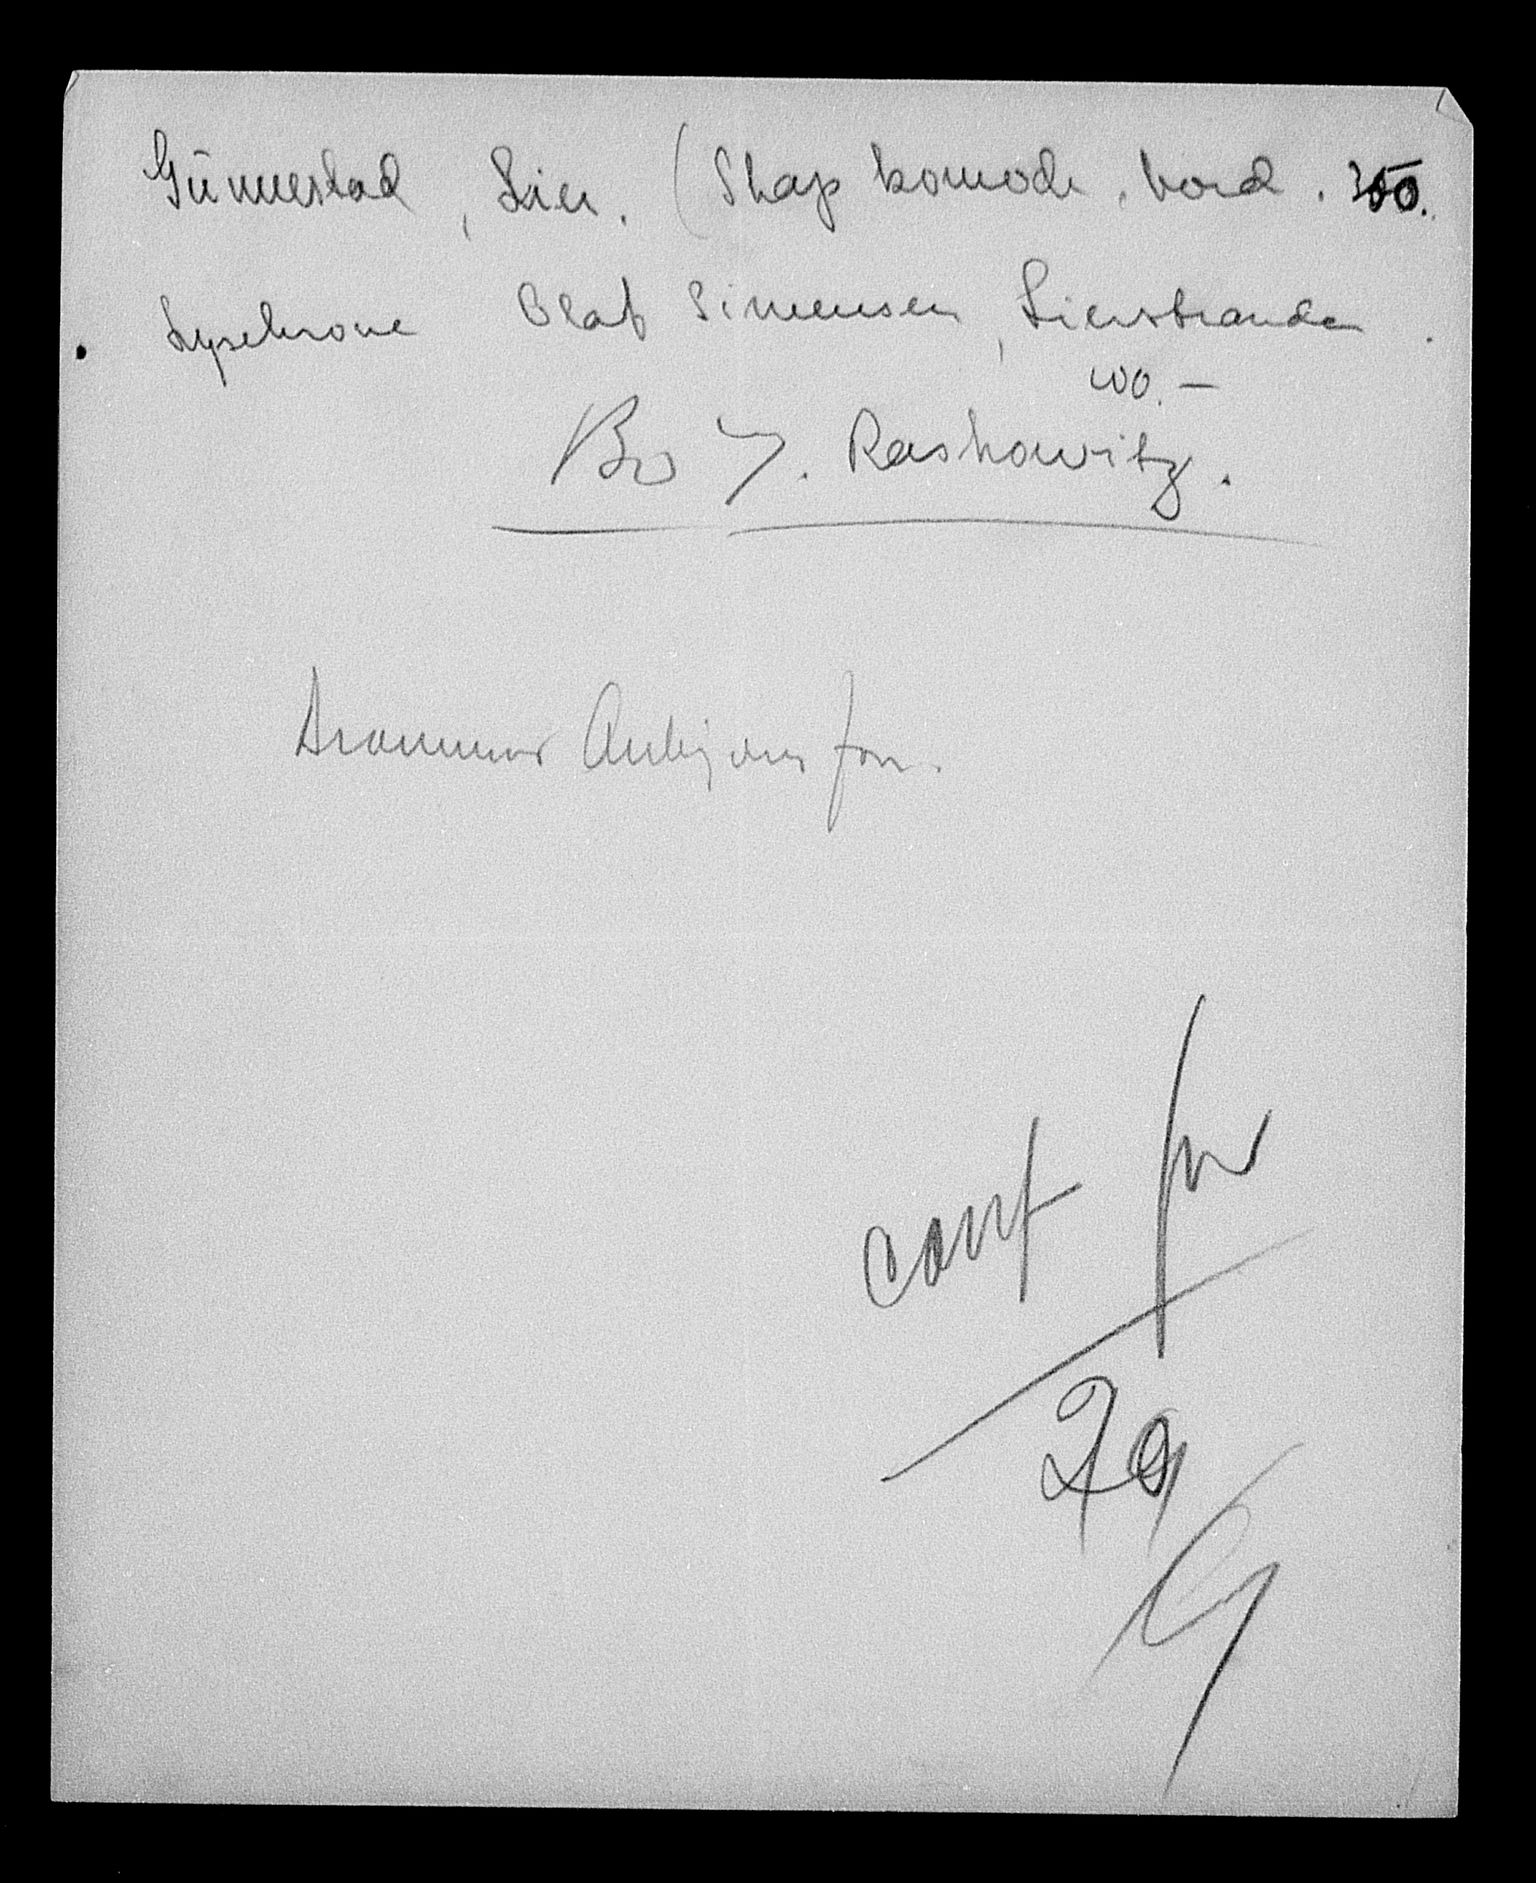 Gunnestad, Lier. (Skap komode. bord.
Lysekrone Olaf Simensen, Lierstranden.
100.-
Bo J. Raskowitz.
Drammens Auksjons forr.
conf
29